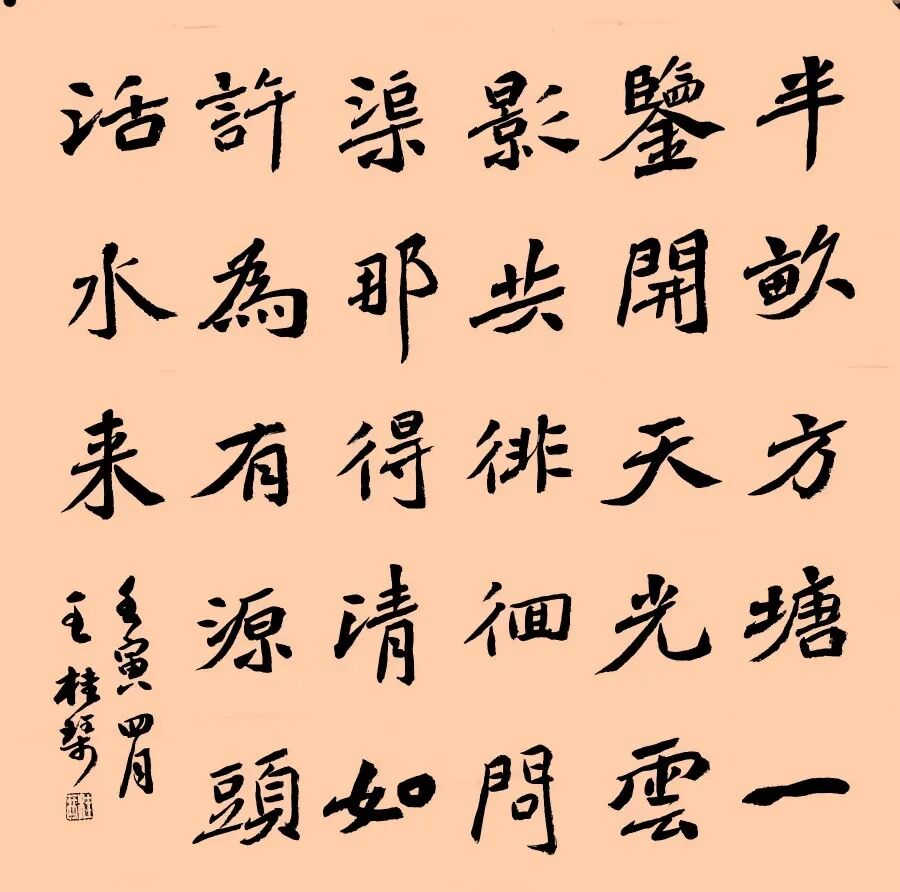 半畝方塘一
鑒開天光雲
影共徘徊問
渠那得清如
許為有源頭
活水来
壬寅四月
王桂琴